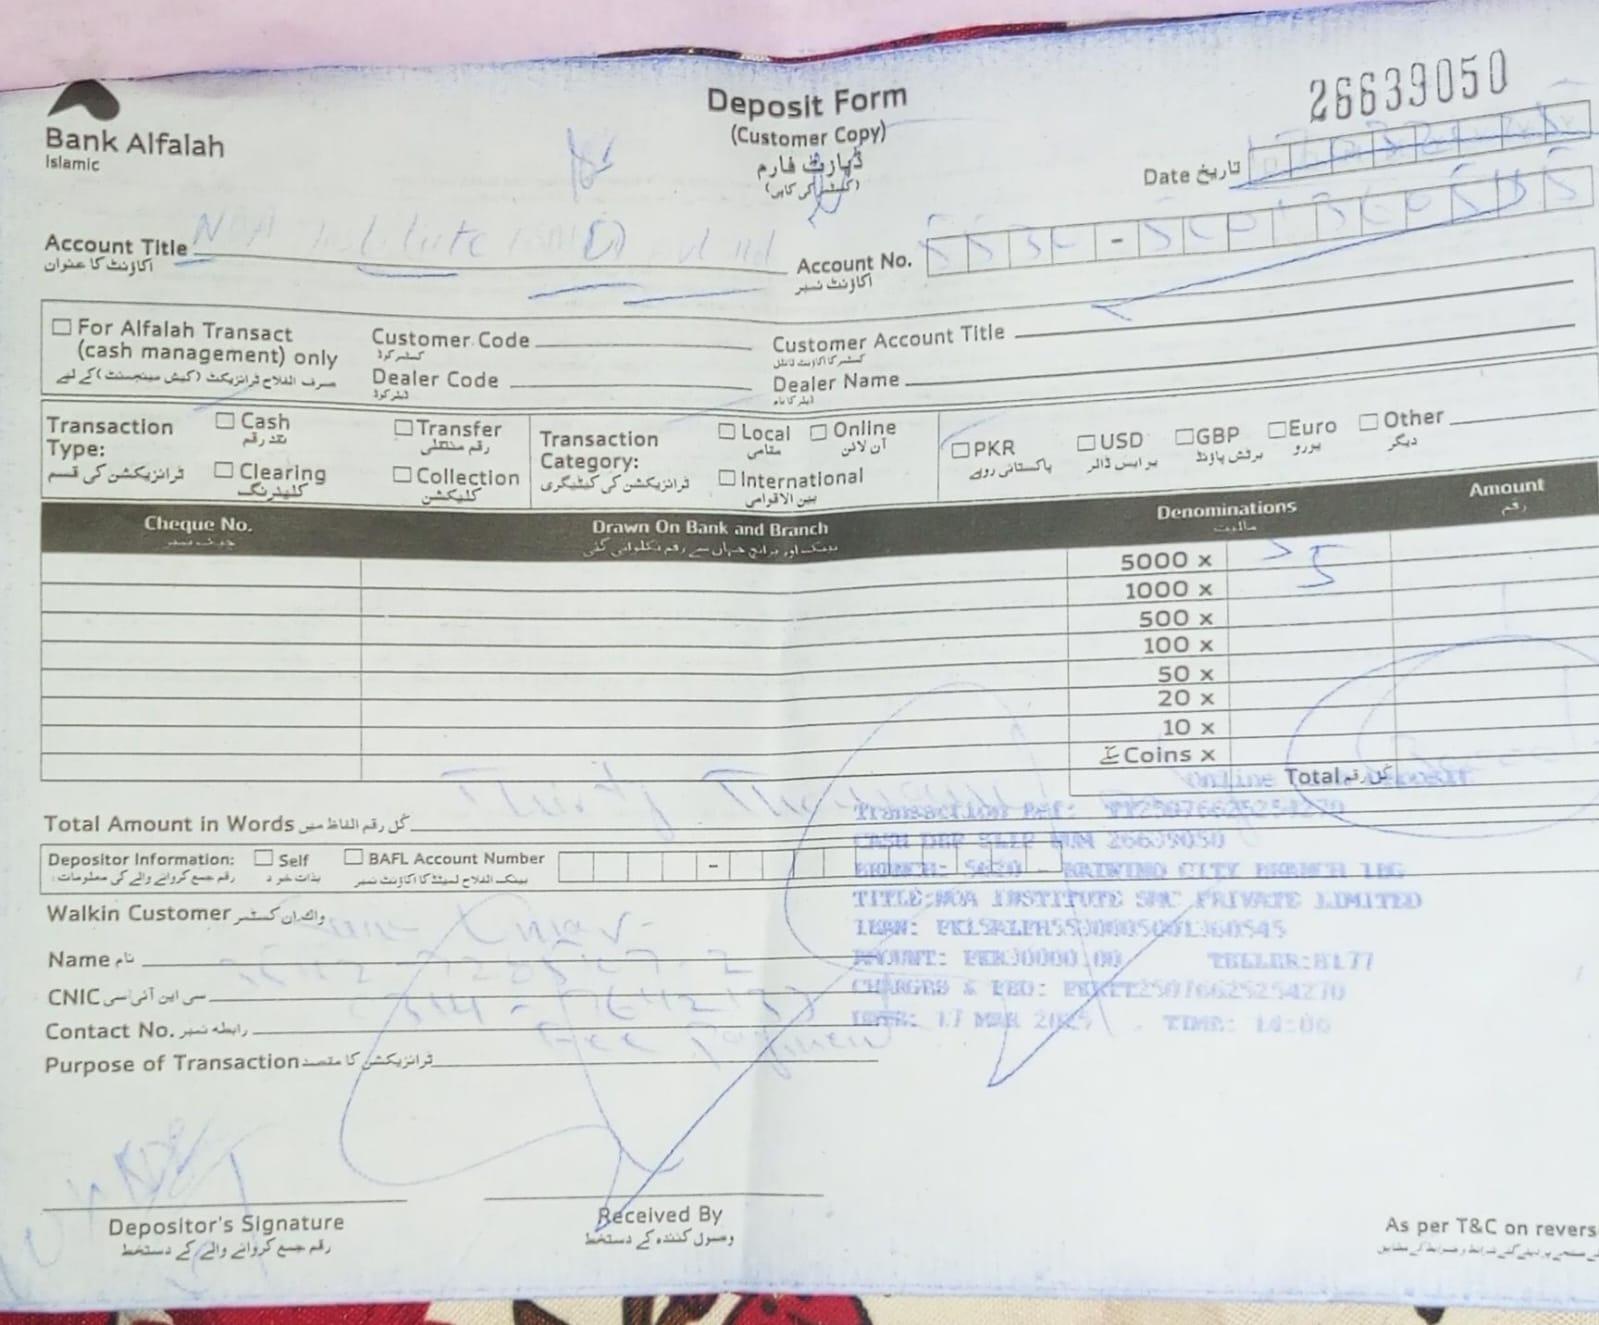 Bank Alfalah
Islamic
Deposit Form
(Customer Copy)
ڈپازٹ فارم
(کسٹمر کی کاپی)
26639050
Date تاریخ
Account Title
اکاؤنٹ کا عنوان
Institute
Account No.
اکاؤنٹ نمبر
For Alfalah Transact
(cash management) only
صرف الفلاح ٹرانزیکٹ (کیش مینجمنٹ) کے لیے
Customer Code
کسٹمر کوڈ
Customer Account Title
کسٹمر کا اکاؤنٹ ٹائٹل
Dealer Code
ڈیلر کوڈ
Dealer Name
ڈیلر کا نام
Transaction Type:
ٹرانزیکشن کی قسم
Cash
نقد رقم
Transfer
رقم منتقلی
Clearing
کلیئرنگ
Collection
کلیکشن
Transaction Category:
ٹرانزیکشن کی کیٹیگری
Local
مقامی
Online
آن لائن
International
بین الاقوامی
PKR
پاکستانی روپے
USD
یو ایس ڈالر
GBP
برٹش پاؤنڈ
Euro
یورو
Other
دیگر
Cheque No.
چیک نمبر
Drawn On Bank and Branch
بینک اور برانچ جہاں سے رقم نکلوائی گئی
Denominations
مالیت
Amount
رقم
5000 x
1000 x
500 x
100 x
50 x
20 x
10 x
سکے Coins x
Total کل رقم
Online Deposit
Thirty Thousand
Total Amount in Words کل رقم الفاظ میں
Transaction Ref: TT25076625254270
CASH DEP SLIP NUM 26639050
Depositor Information:
رقم جمع کروانے والے کی معلومات:
Self
بذات خود
BAFL Account Number
بینک الفلاح لمیٹڈ کا اکاؤنٹ نمبر
BRANCH: 5620 - RAIWIND CITY BRANCH IBG
TITLE:NOA INSTITUTE SMC PRIVATE LIMITED
Walkin Customer واک ان کسٹمر
Name نام
AMOUNT: PKR30000.00 TELLER:8177
CNIC سی این آئی سی
CHARGES & FED: PKRTT25076625254270
Contact No. رابطہ نمبر
DATE: 17 MAR 2025
Purpose of Transaction ٹرانزیکشن کا مقصد
Fee Payment
Depositor's Signature
رقم جمع کروانے والے کے دستخط
Received By
وصول کنندہ کے دستخط
As per T&C on revers